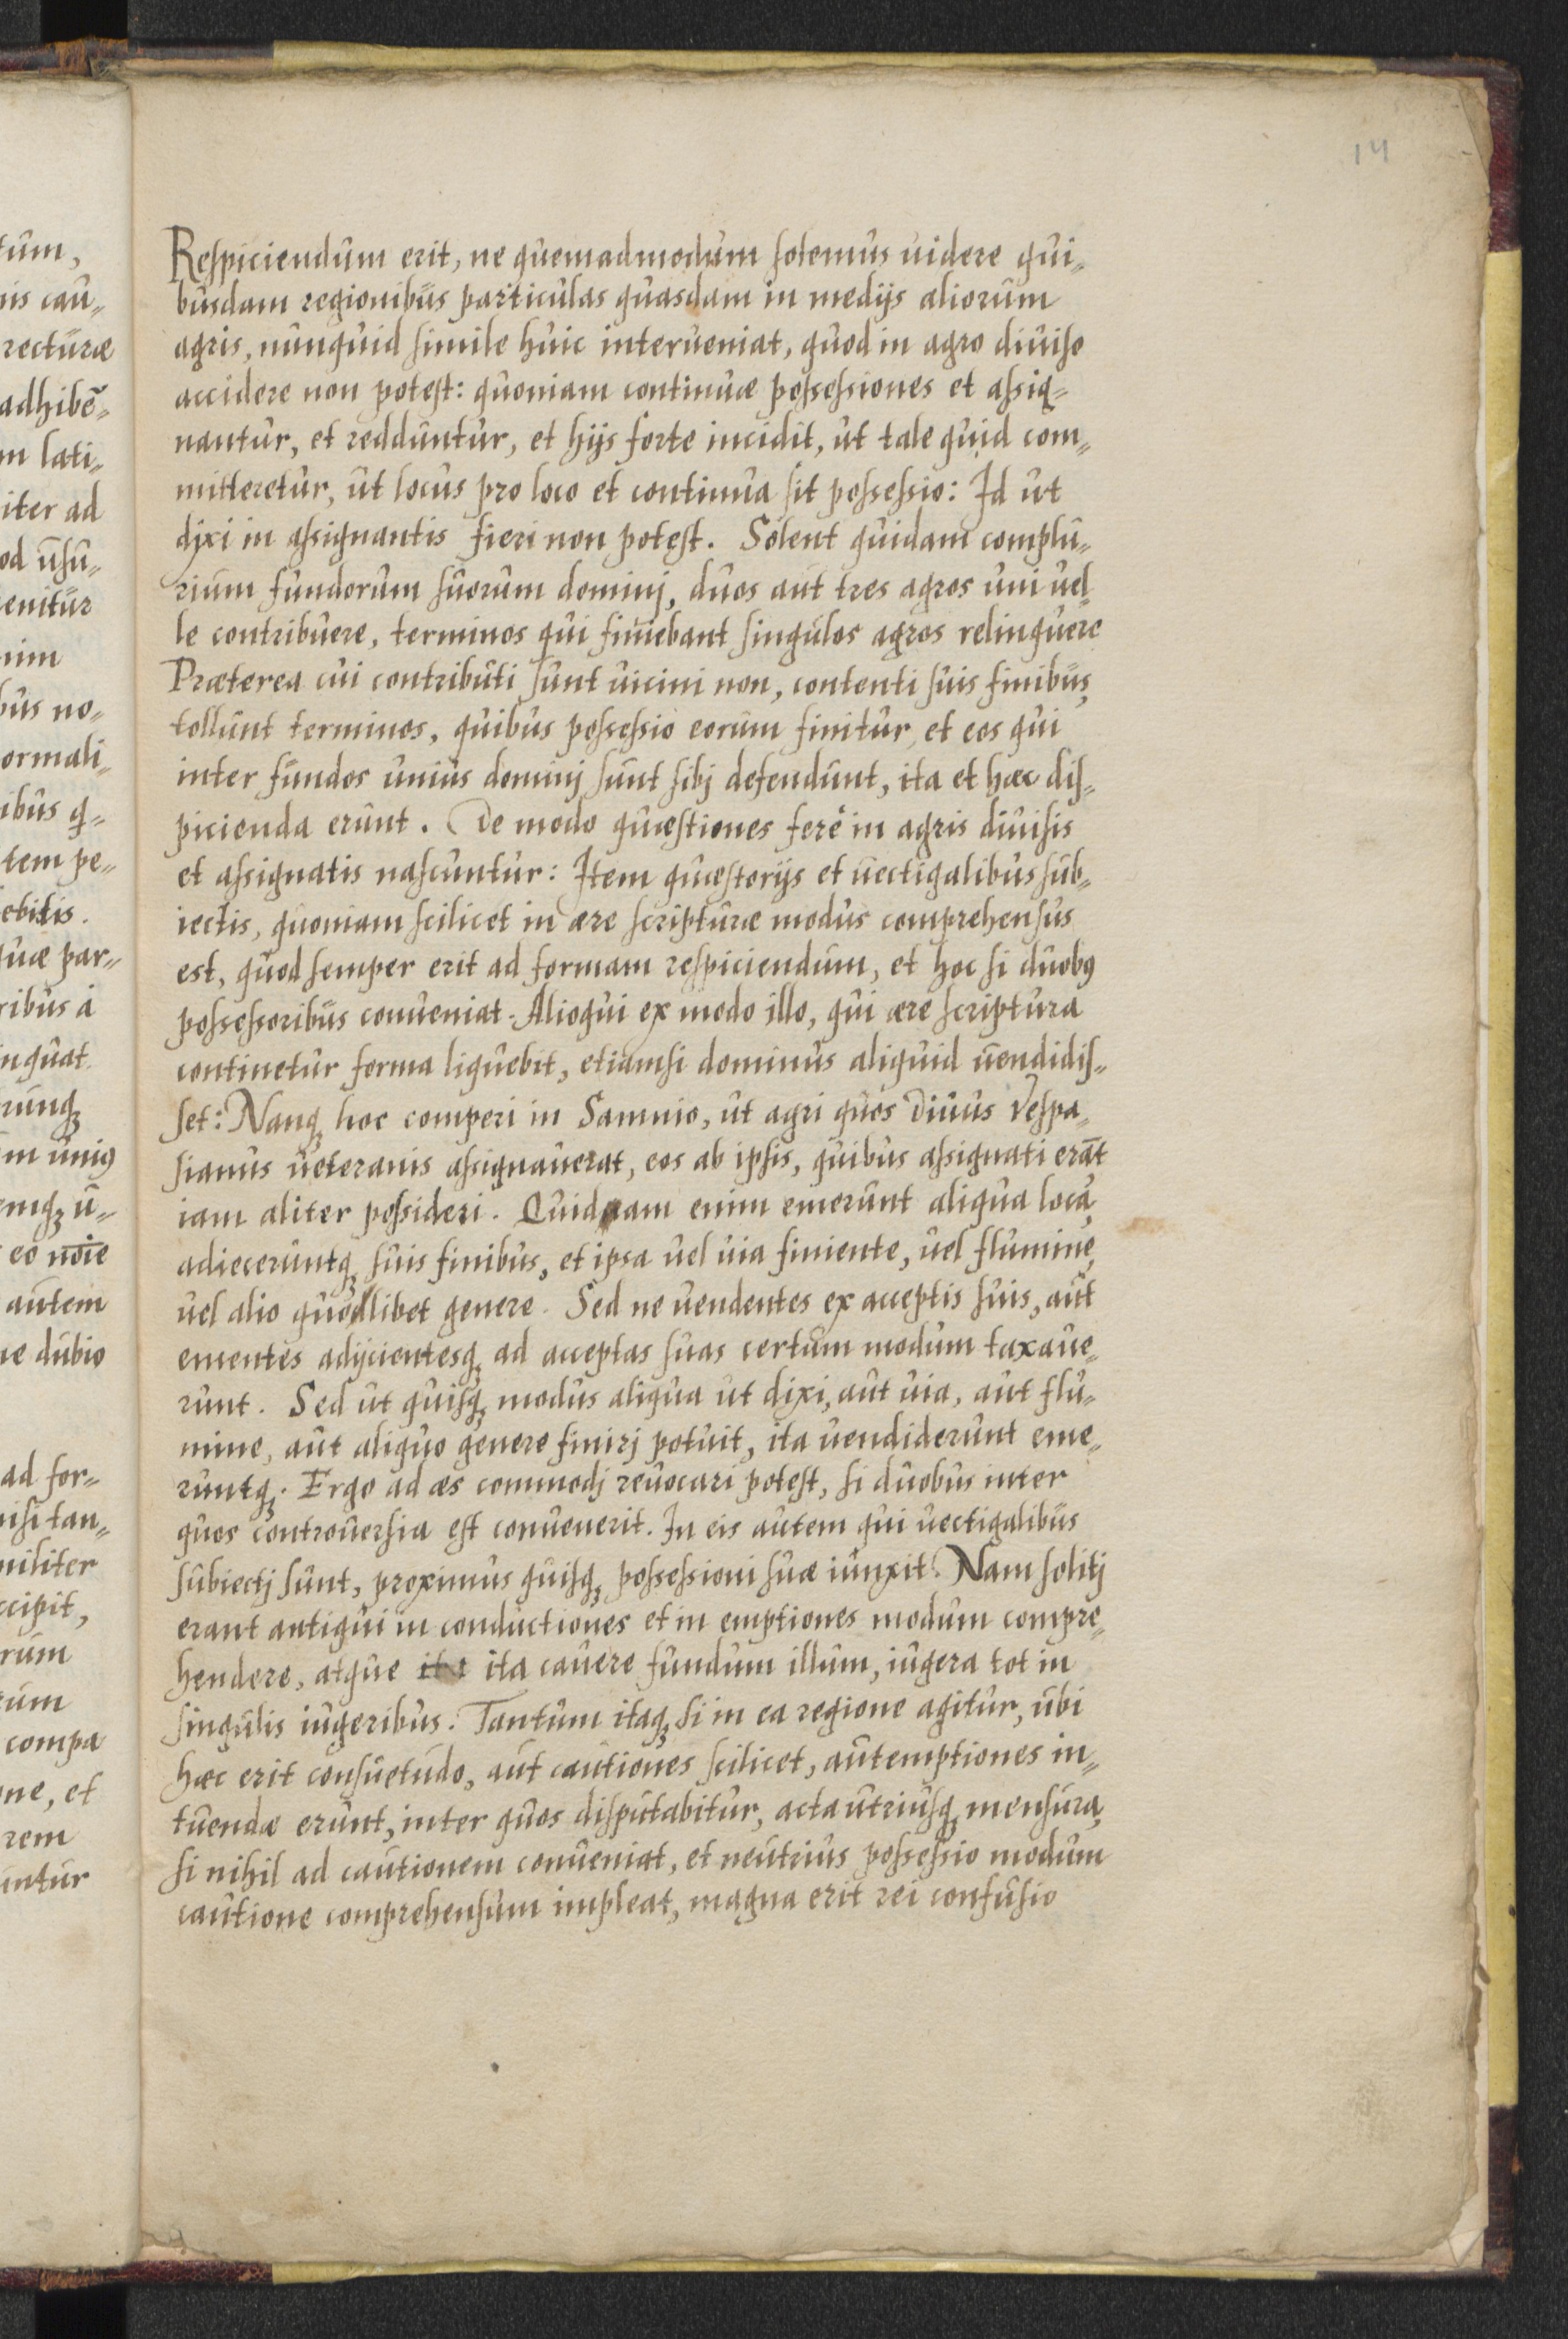 14
Respiciendum erit, ne quemadmodum solemus uidere qui=
busdam regionibus particulas quasdam in medijs aliorum
agris, nunquid simile huic interueniat, quod in agro diuiso
accidere non potest: quoniam continuæ possessiones et assig=
nantur, et redduntur, et hijs forte incidit, ut tale quid com=
mitteretur, ut locus pro loco et continua sit possessio: Id ut
dixi in assignantis fieri non potest. Solent quidam complu=
rium fundorum suorum dominj, duos aut tres agros uni uel=
le contribuere, terminos qui finiebant singulos agros relinquere
Præterea cui contributi sunt uicini non, contenti suis finibus,
tollunt terminos, quibus possessio eorum finitur, et eos qui
inter fundos unius dominj sunt sibj defendunt, ita et hæc dis=
picienda erunt. De modo quæstiones ferè in agris diuisis
et assignatis nascuntur: Item quæstorijs et uectigalibus sub=
iectis, quoniam scilicet in ære scripturæ modus comprehensus
est, quod semper erit ad formam respiciendum, et hoc si duobꝰ
possessoribus conueniat. Alioqui ex modo illo, qui ære scriptura
continetur forma liquebit, etiamsi dominus aliquid uendidis=
set: Nanqꝫ hoc comperi in Samnio, ut agri quos Diuus Vespa=
sianus ueteranis assignauerat, eos ab ipsis, quibus assignati erāt
iam aliter possideri. Quidnam enim emerunt aliqua loca,
adieceruntqꝫ suis finibus, et ipsa uel uia finiente, uel flumine,
uel alio quodlibet genere. Sed ne uendentes ex acceptis suis, aut
ementes adijcientesqꝫ ad acceptas suas certum modum taxaue=
runt. Sed ut quisqꝫ modus aliqua ut dixi, aut uia, aut flu=
mine, aut aliquo genere finirj potuit, ita uendiderunt eme=
runtqꝫ. Ergo ad æs commodj reuocari potest, si duobus inter
quos controuersia est conuenerit. In eis autem qui uectigalibus
subiectj sunt, proximus quisqꝫ possessioni suæ iunxit. Nam solitj
erant antiqui in conductiones et in emptiones modum compre=
hendere, atque ita cauere fundum illum, iugera tot in
singulis iugeribus. Tantum itaqꝫ si in ea regione agitur, ubi
hæc erit consuetudo, aut cautiones scilicet, autemptiones in=
tuendæ erunt, inter quos disputabitur, acta utriusqꝫ mensura,
si nihil ad cautionem conueniat, et neutrius possessio modum
cautione comprehensum impleat, magna erit rei confusio